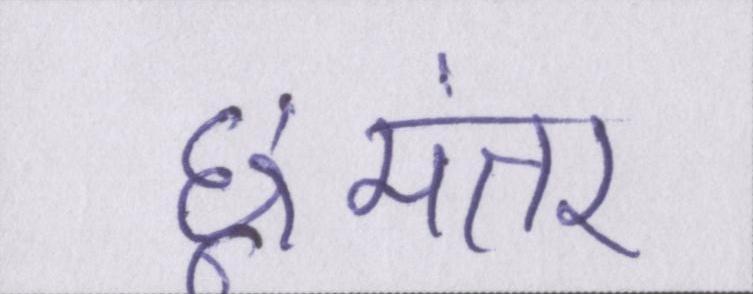 छूंमंतर